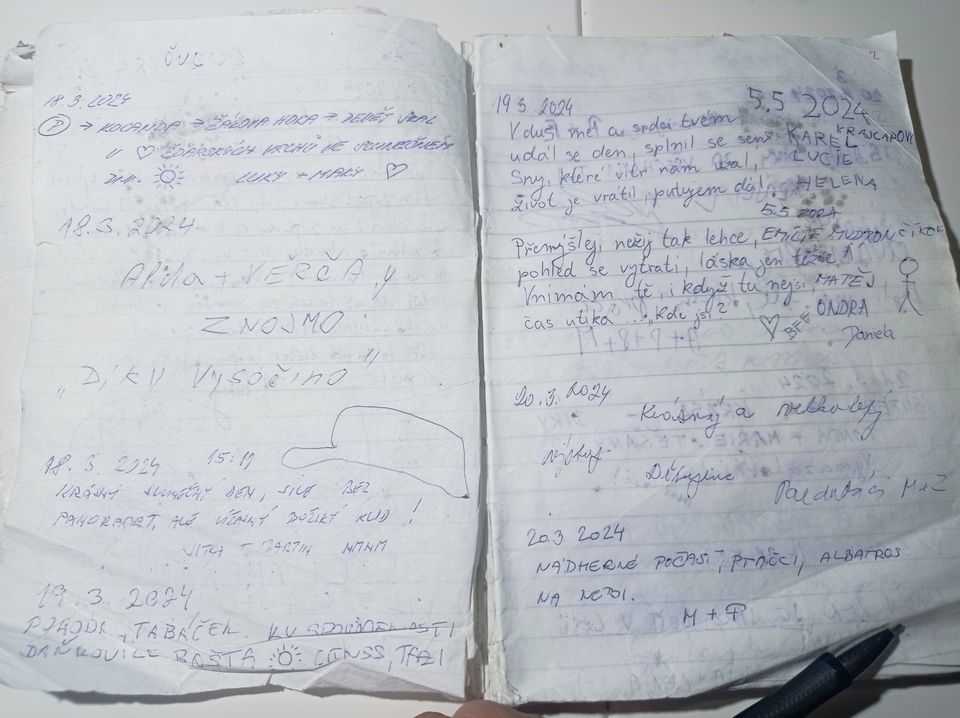 18.3.2024
Ⓟ → KOCANDA → ŽÁKOVA HORA → DEVĚT SKAL
" ♡ ŽĎÁRSKÝCH VRCHŮ VE SLUNEČNÉM
DNI. LUKY + MAKY ♡
18.3.2024
+ VERČA
ZNOJMO
"DÍKY VYSOČINO"
18.3.2024 15:11
KRÁSNÝ SLUNEČNÝ DEN, SICE BEZ
PANORAMAT, ALE ÚŽASNÝ BOŽSKÝ KLID!
JITKA + MARTIN NMNM
19.3.2024
POHODA, TABÁČEK. KU SPOKOJENOSTI
DAŇKOVICE BAŠTA
19.3.2024
V duši mé a srdci tvém,
udál se den, splnil se sen.
Sny, které vítr nám vzal,
život je vrátil, putujem dál.
5.5 2024
KAREL
LUCIE
HELENA
Přemýšlej, nežij tak lehce,
pohled se vytratí, láska jen těžce.
Vnímám tě, i když tu nejsi
čas utíká ... "Kde jsi?"
5.5 2024
EMILIE
MATĚJ
ONDRA
♡ BFF
Daniela
20.3.2024
Krásný a velkolepý
výstup.
Děkujeme
Pardubáci M+Z
20.3.2024
NÁDHERNÉ POČASÍ, PTÁČCI, ALBATROS
NA NEBI.
M + P
2